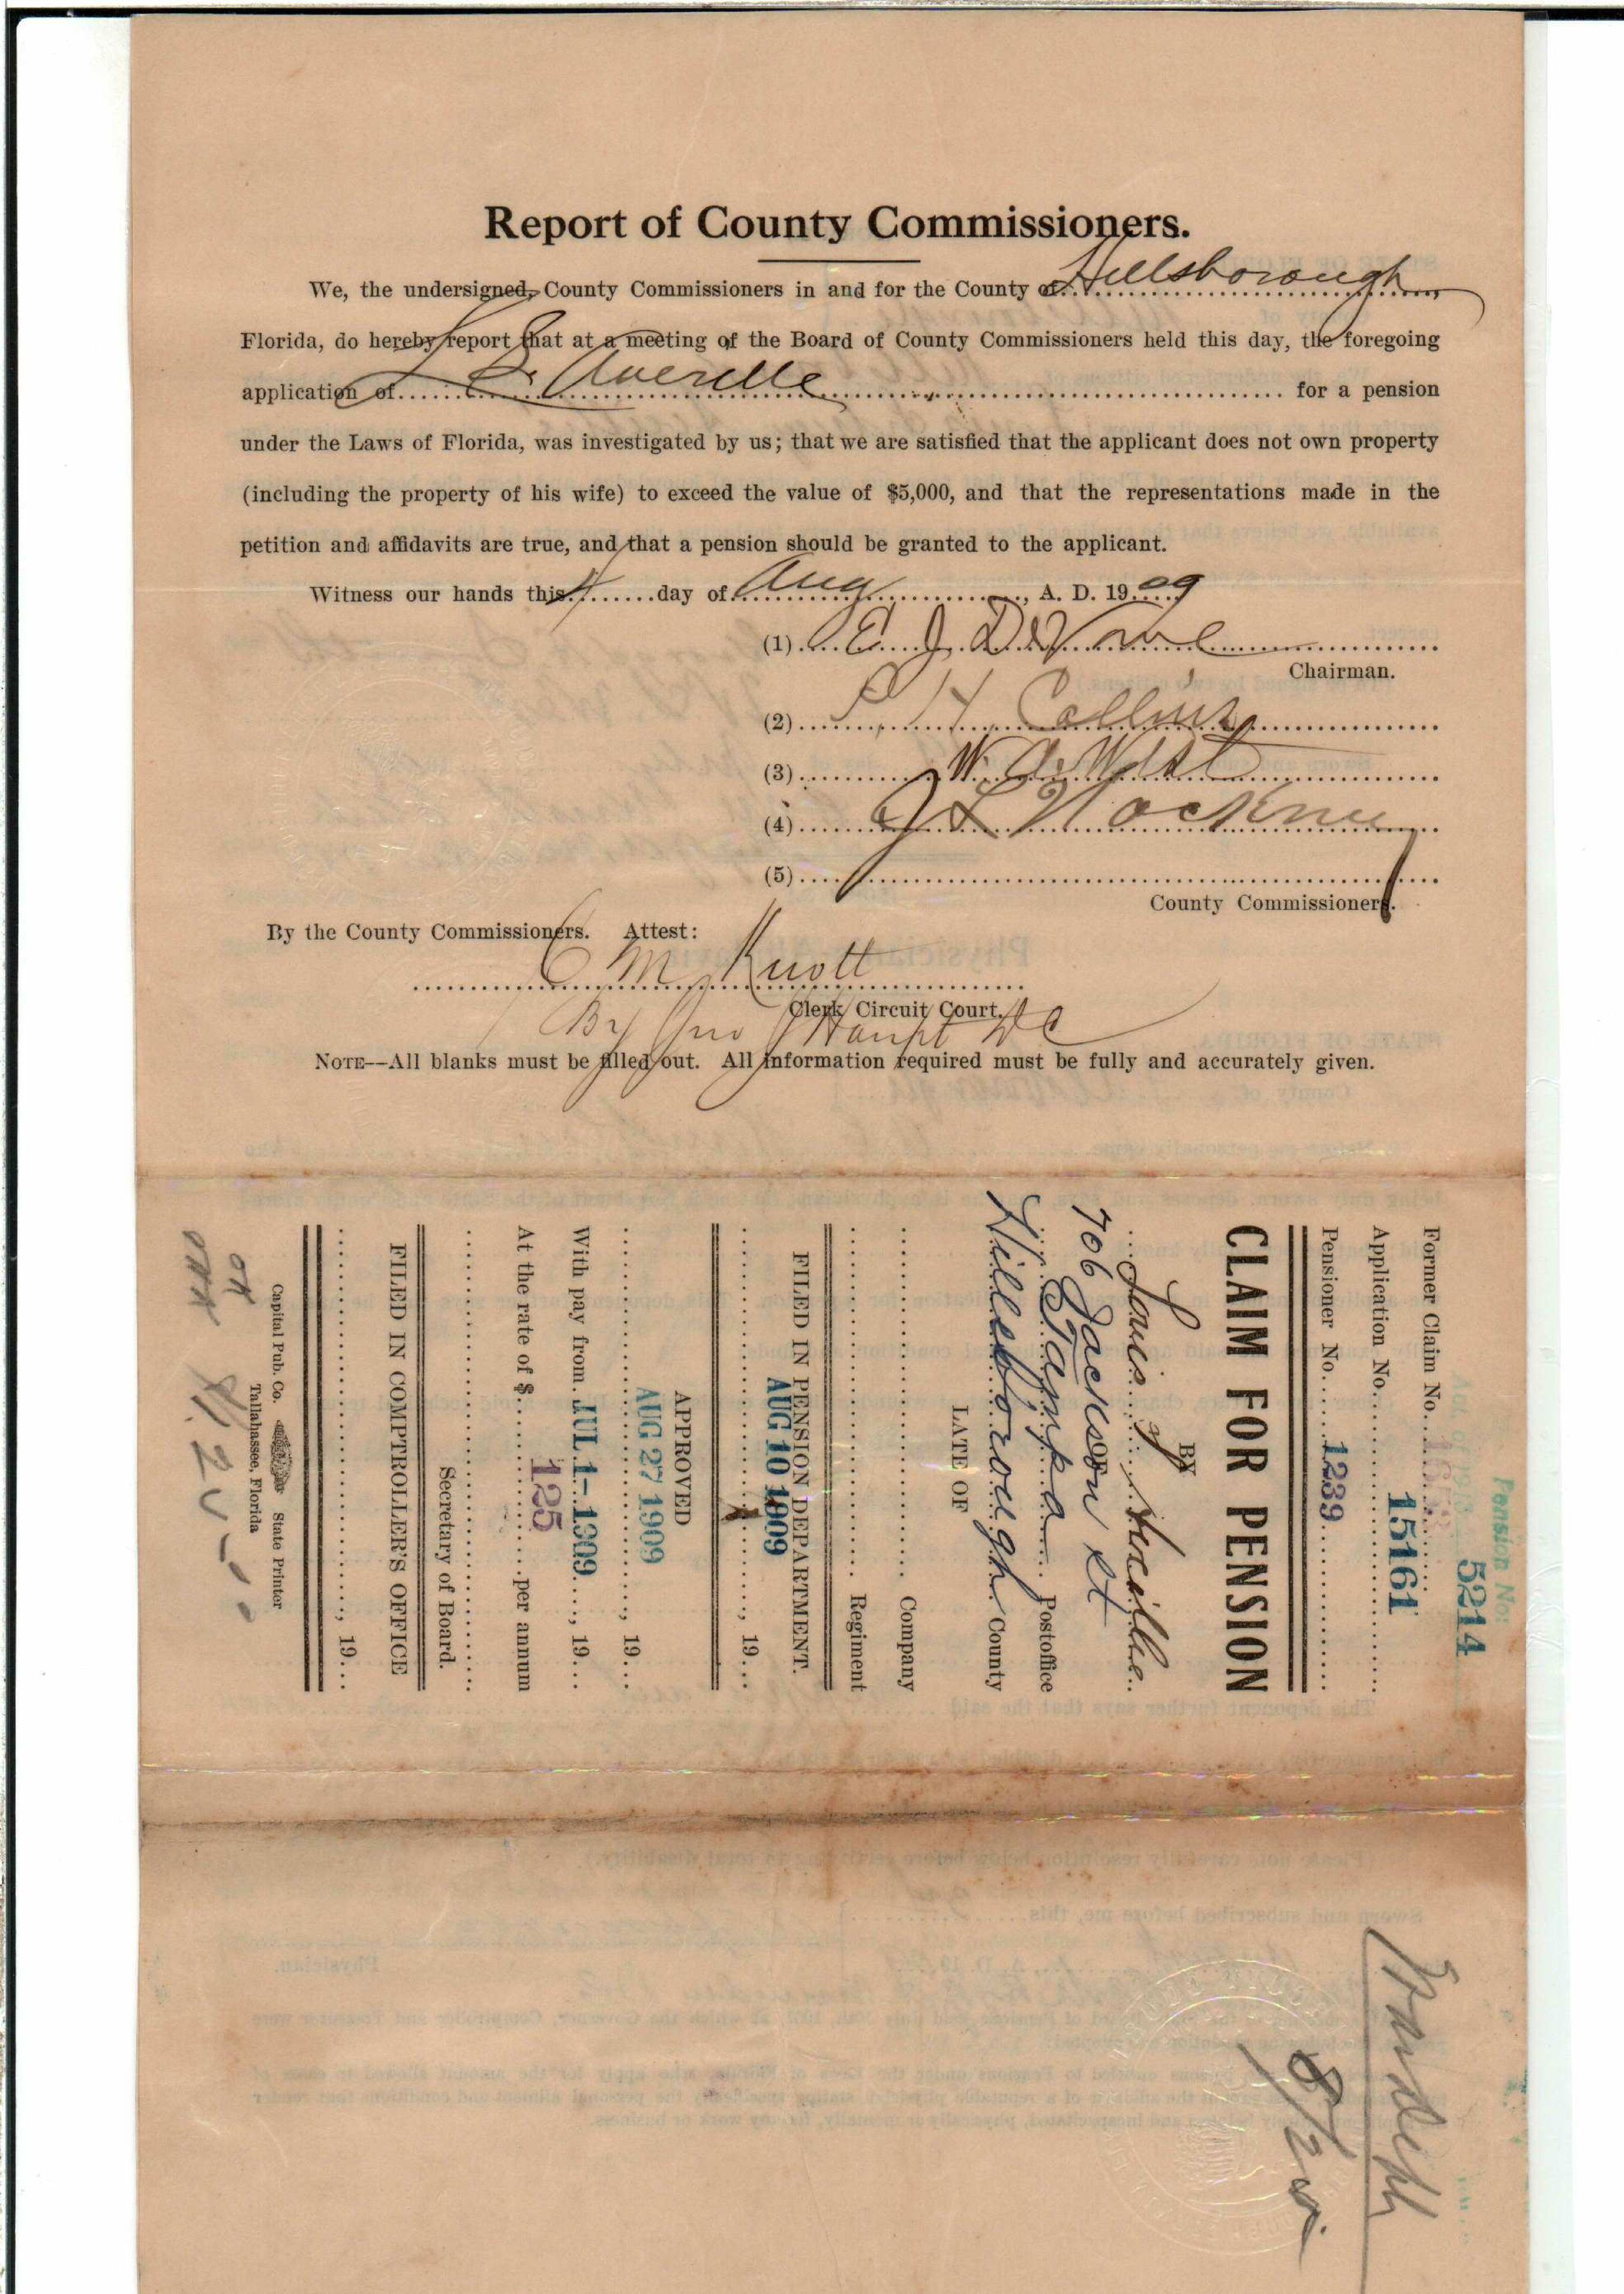 Report of County Commissioners.
We, the undersigned, County Commissioners in and for the County of Hillsborough,
Florida, do hereby report that at a meeting of the Board of County Commissioners held this day, the foregoing
application of Averille for a pension
under the Laws of Florida, was investigated by us; that we are satisfied that the applicant does not own property
(including the property of his wife) to exceed the value of $5,000, and that the representations made in the
petition and affidavits are true, and that a pension should be granted to the applicant.
Witness our hands this 4 day of Aug, A. D. 1909
(1) E. J. DeVane
Chairman.
(2) H. Collins
(3) W. A. West
(4) J L Hackney
(5)
County Commissioners.
By the County Commissioners. Attest:
C M Knott
Clerk Circuit Court.
By Jno Haupt DC
NOTE—All blanks must be filled out. All information required must be fully and accurately given.
Pension No.
5214
Former Claim No.
Application No. 15161
Pensioner No. 1239
CLAIM FOR PENSION
BY
Louis Averille
OF
706 Jackson St
Tampa Postoffice
Hillsborough County
LATE OF
Company
Regiment
FILED IN PENSION DEPARTMENT.
AUG 10 1909, 19
APPROVED
AUG 27 1909, 19
With pay from JUL 1-1909, 19
At the rate of $125 per annum
Secretary of Board.
FILED IN COMPTROLLER'S OFFICE
, 19
Capital Pub. Co. State Printer
Tallahassee, Florida
OK